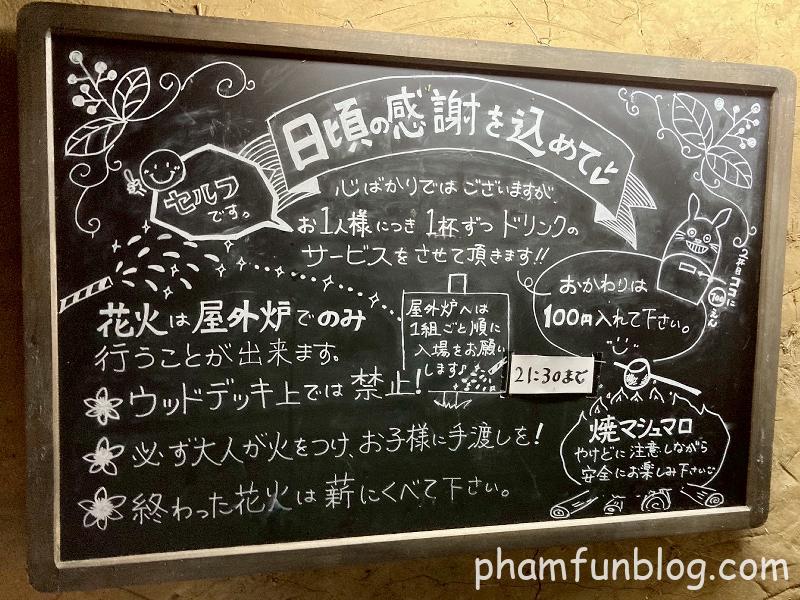 日頃の感謝を込めて
セルフ
です。
心ばかりではございますが、
お1人様につき 1杯ずつ ドリンクの
サービスをさせて頂きます!!
おかわりは
100円入れて下さい。
2杯目ココに
100
えん
花火は屋外炉でのみ
行うことが出来ます。
屋外炉へは
1組ごと順に
入場をお願い
します♪
21:30まで
ウッドデッキ上では 禁止!
必ず大人が火をつけ、お子様に手渡しを!
終わった花火は薪にくべて下さい。
焼マシュマロ
やけどに注意しながら
安全にお楽しみ下さい
phamfunblog.com